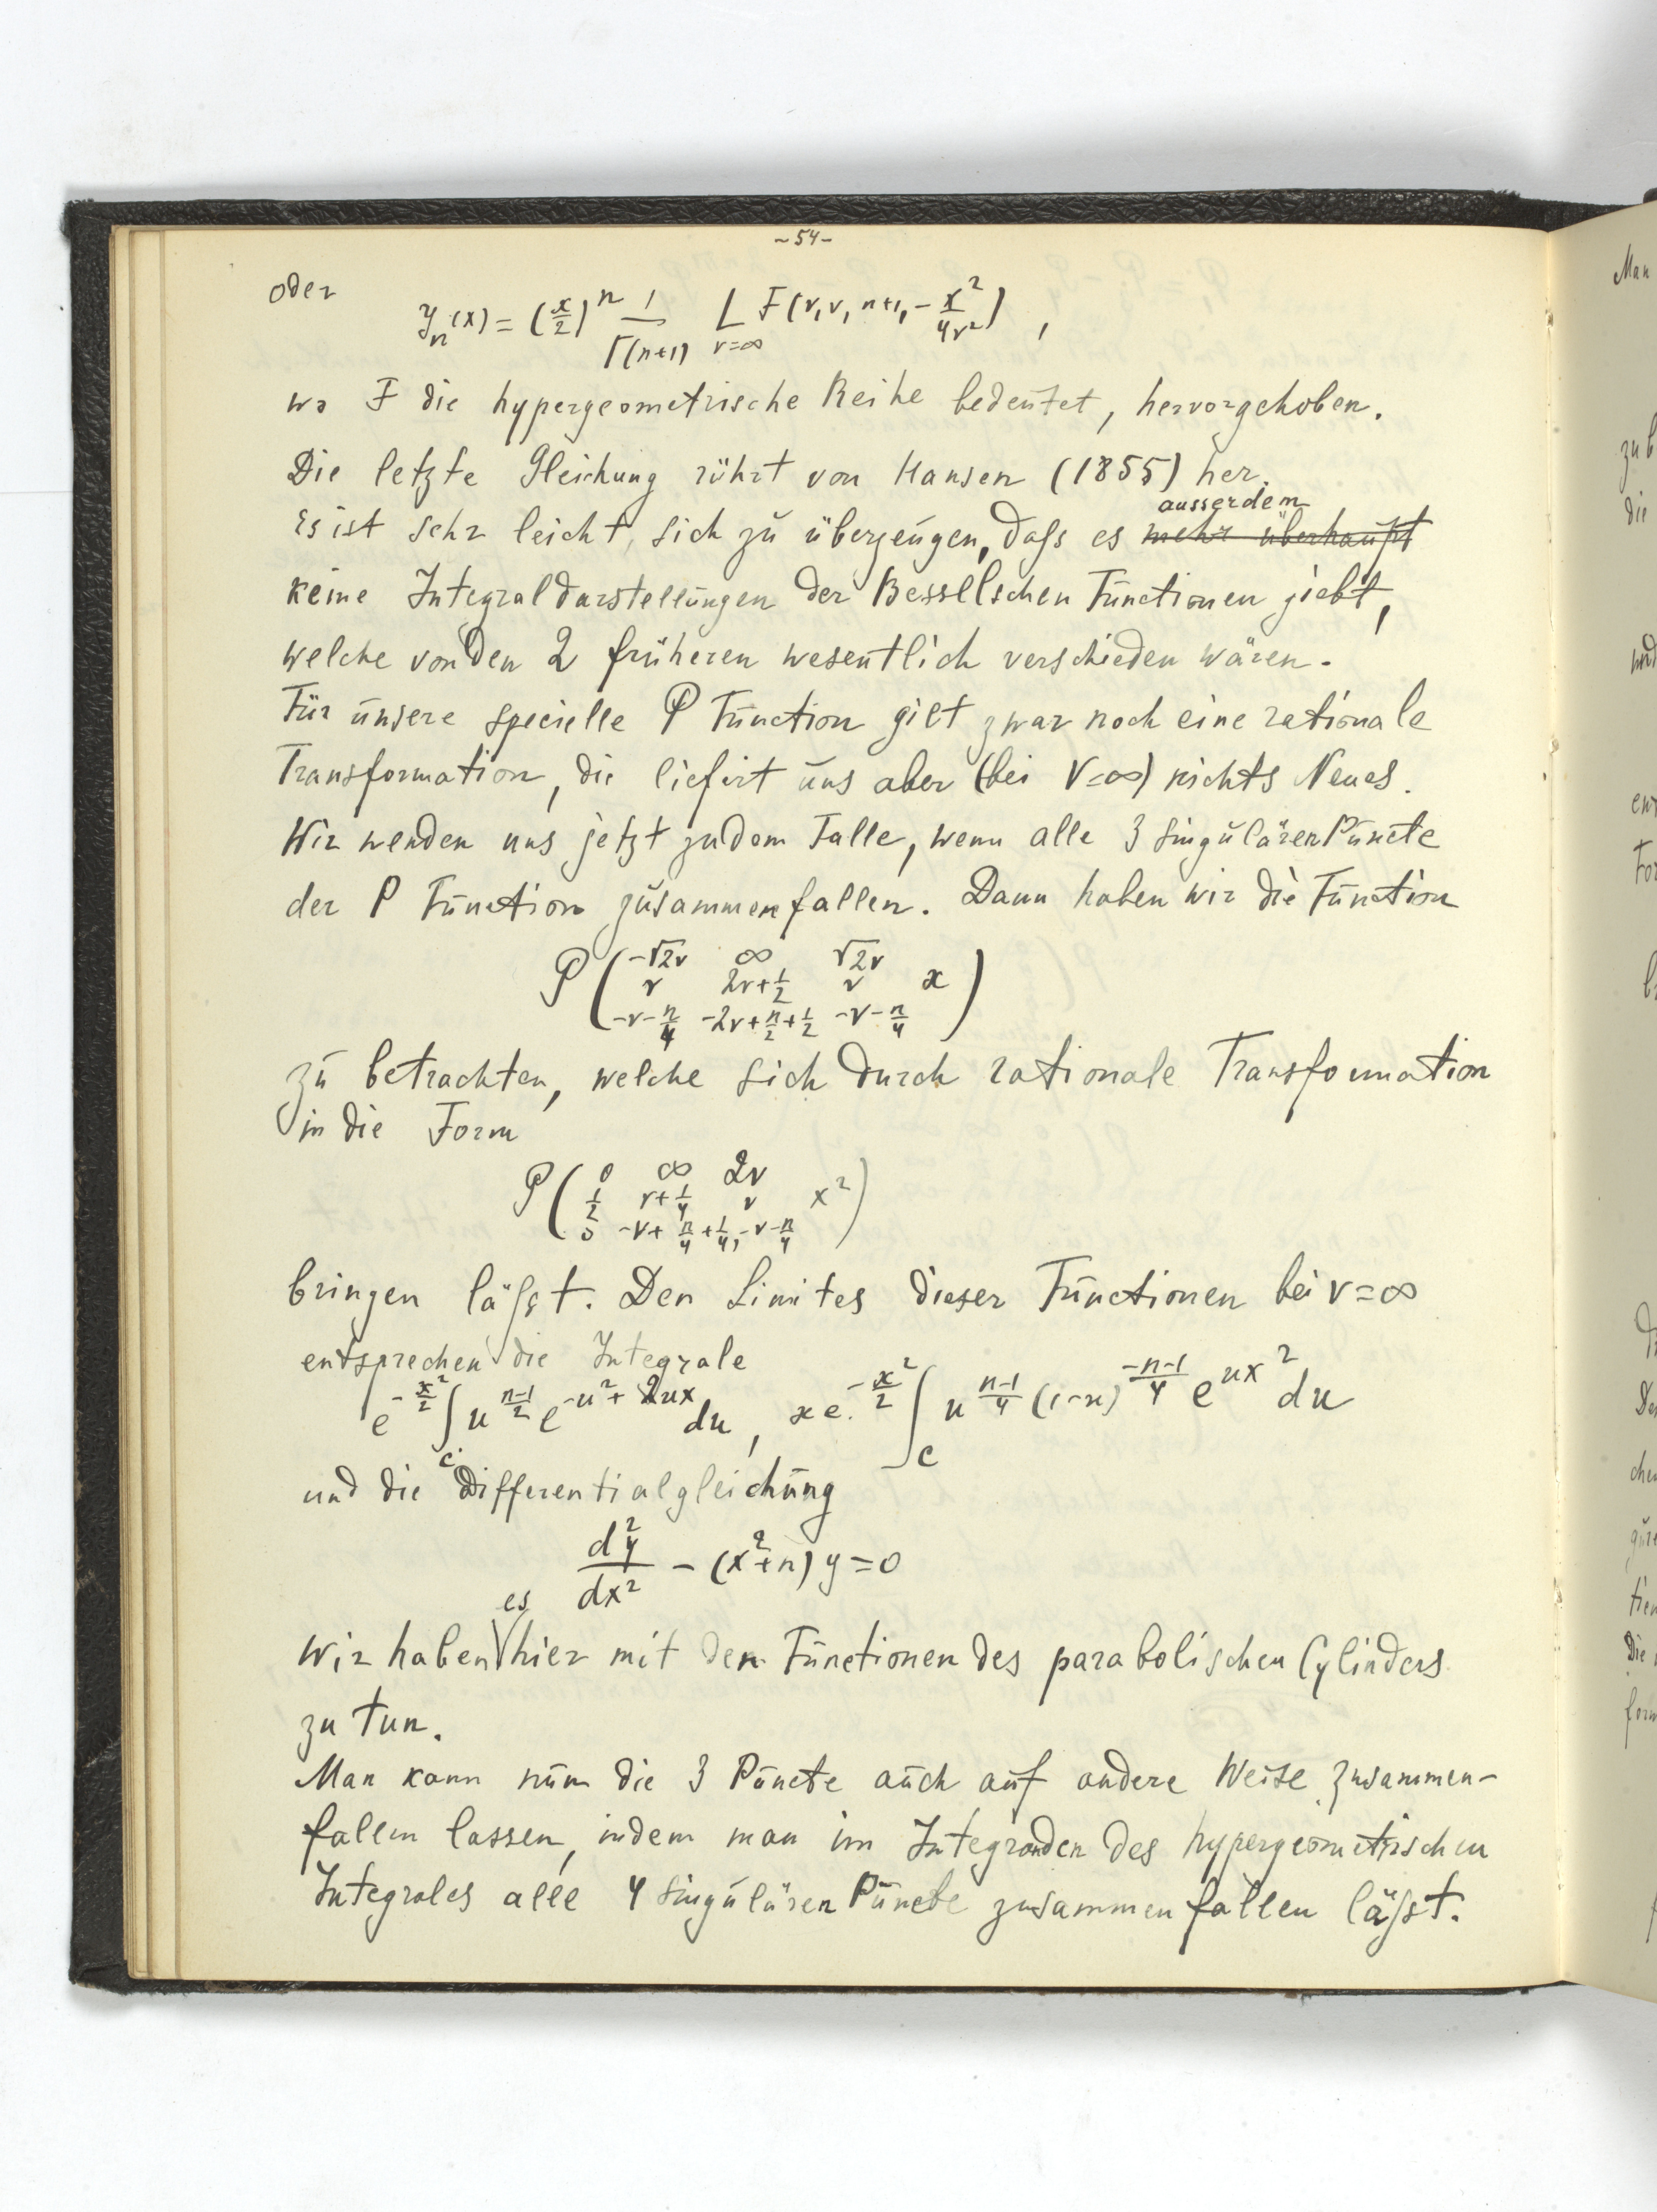 ~54-
oder
J_n(x) = (x/2)^n 1/Γ(n+1) L_{ν=∞} F(ν, ν, n+1, -x²/4ν²),
wo F die hypergeometrische Reihe bedeutet, hervorgehoben.
Die letzte Gleichung rührt von Hansen (1855) her.
ausserdem
Es ist sehr leicht, sich zu überzeugen, daſs es mehr überhaupt
keine Integraldarstellungen der Bessellschen Functionen giebt,
welche von den 2 früheren wesentlich verschieden wären.
Für unsere specielle P Function gilt zwar noch eine rationale
Transformation, die liefert uns aber (bei ν=∞) nichts Neues.
Wir wenden uns jetzt zu dem Falle, wenn alle 3 singulären Puncte
der P Function zusammenfallen. Dann haben wir die Function
P(-√2ν ∞ √2ν
ν 2ν+1/2 ν x
-ν-n/4 -2ν+n/2+1/2 -ν-n/4)
zu betrachten, welche sich durch rationale Transformation
in die Form
P(0 ∞ 2ν
1/2 ν+1/4 ν x²
0 -ν+n/4+1/4, -ν-n/4)
bringen läſst. Den Limites dieser Functionen bei ν=∞
entsprechen die Integrale
e^{-x²/2} ∫_C u^{(n-1)/2} e^{-u²+2ux} du, x e^{-x²/2} ∫_C u^{(n-1)/4} (1-u)^{(-n-1)/4} e^{ux²} du
und die Differentialgleichung
d²y/dx² - (x²+n) y = 0
es
Wir haben hier mit den Functionen des parabolischen Cylinders
zu tun.
Man kann nun die 3 Puncte auch auf andere Weise zusammen-
fallen lassen, indem man im Integranden des hypergeometrischen
Integrales alle 4 singulären Puncte zusammenfallen läſst.
Man